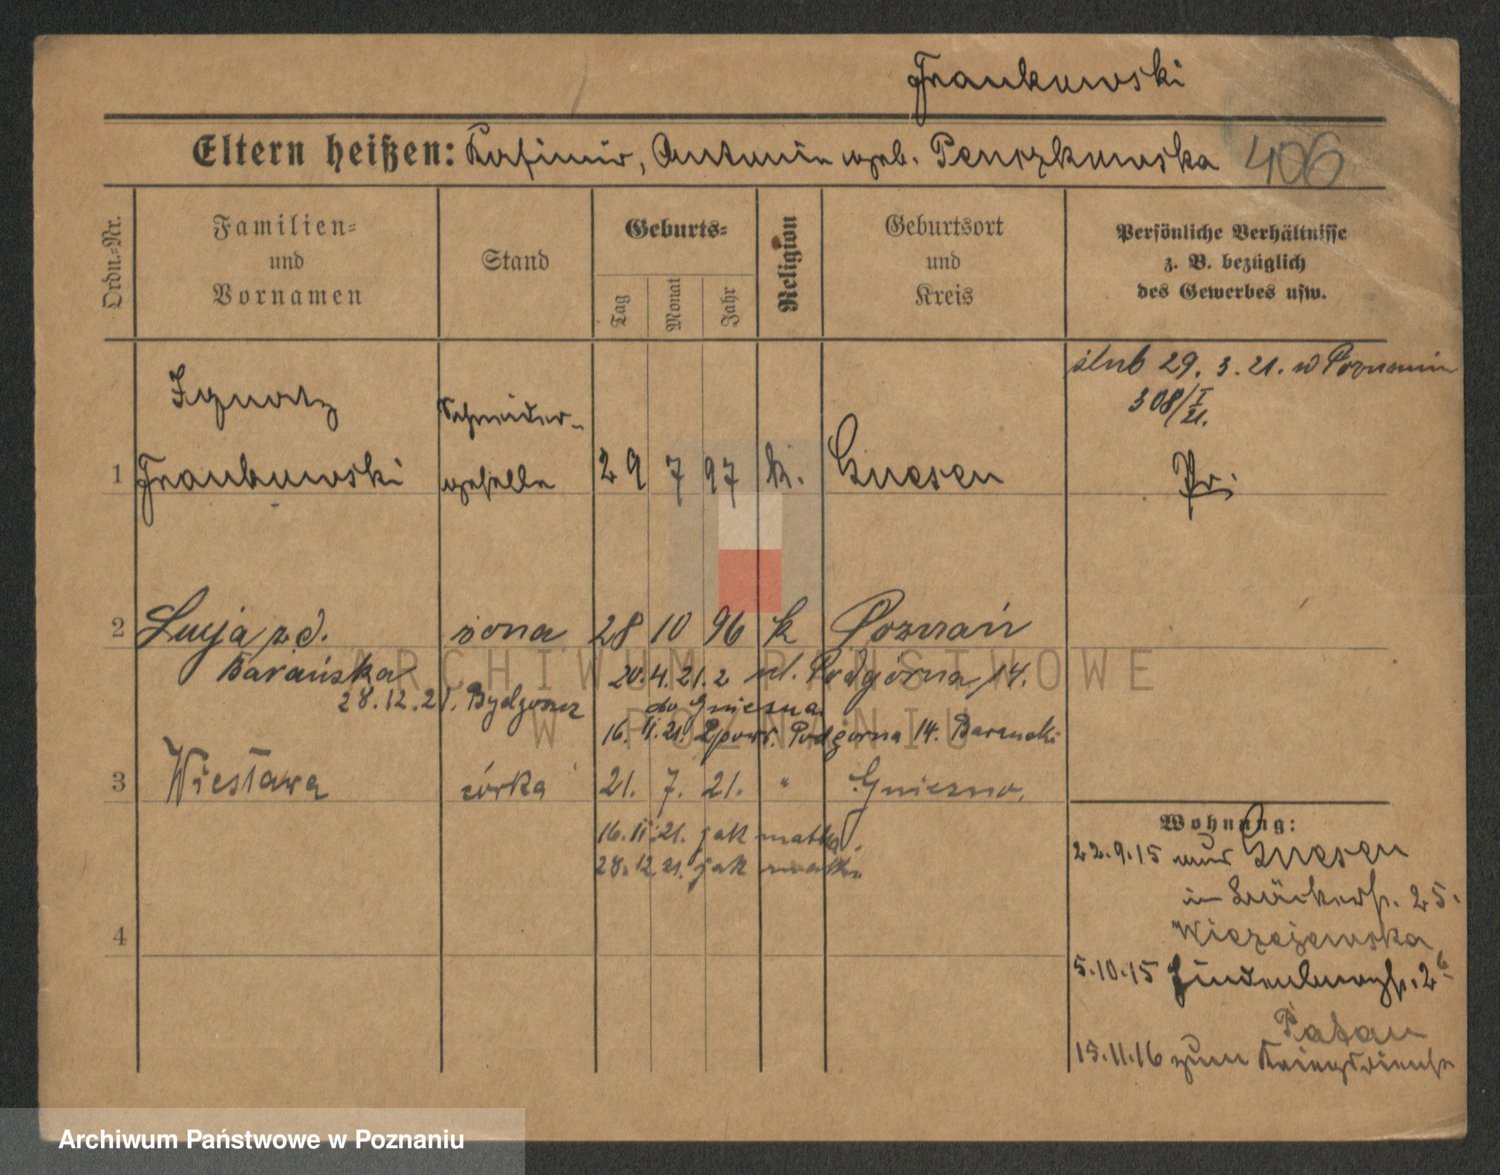 Frankowski
Eltern heißen: Kasimir, Antonie geb. Penczkowska 406
Ordn.-Nr.
Familien-
und
Vornamen
Stand
Geburts-
Tag
Monat
Jahr
Religion
Geburtsort
und
Kreis
Persönliche Verhältnisse
z. B. bezüglich
des Gewerbes usw.
ślub 29. 3. 21. w Poznaniu
308/I 21.
1 Ignatz
Frankowski
Schneider-
geselle
29 7 97 k. Gnesen
Pr.
2 Łucja z d.
Barańska
żona 28 10 96 k Poznań
20.4.21. z ul. Podgórna 14.
do Gniezna
28.12.21. Bydgoszcz
16. 11. 21. Podgórna 14.
3 Wiesława córka 21. 7. 21. " Gniezno.
16.11.21. jak matka.
28.12.21. jak matka.
4
Wohnung:
22.9.15 Gnesen
in Bäckerstr. 25.
5.10.15 Hindenburgstr. 26
15.11.16 zum Kriegsdienst
ARCHIWUM PAŃSTWOWE
W POZNANIU
Archiwum Państwowe w Poznaniu